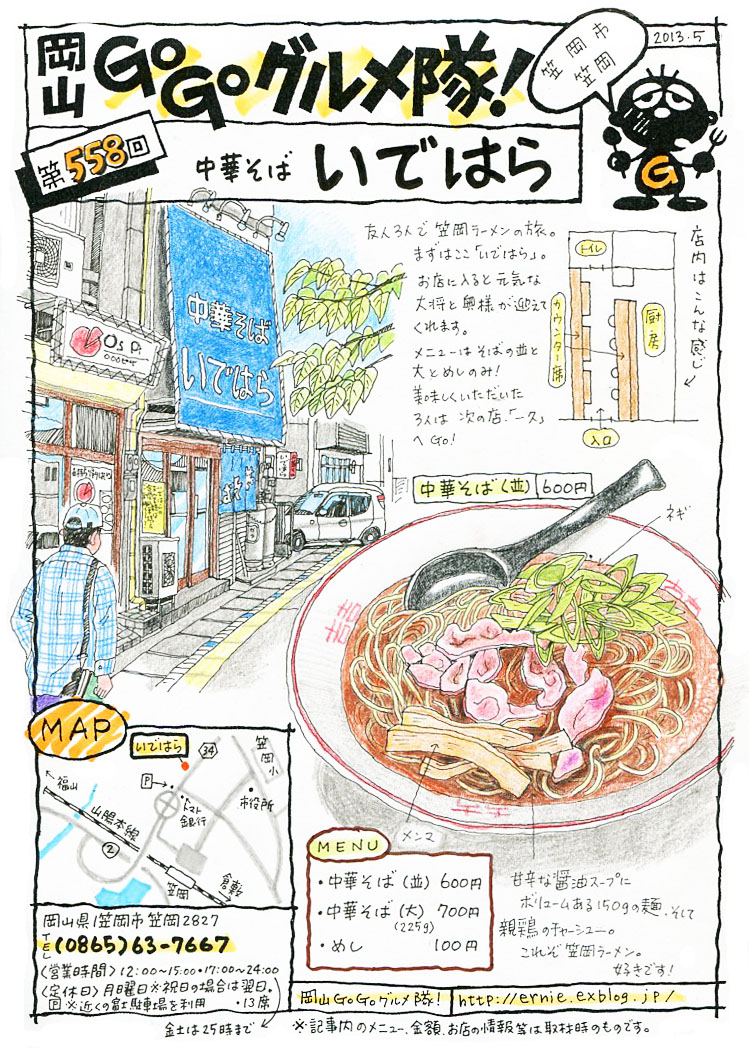 岡山 GoGoグルメ隊!
笠岡市
笠岡
2013.5
第558回
中華そば いではら
友人3人で笠岡ラーメンの旅。
まずはここ「いではら」。
お店に入ると元気な
大将と奥様が迎えて
くれます。
メニューはそばの並と
大とめしのみ!
美味しくいただいた
3人は次の店、「一久」
へGo!
店内はこんな感じ
トイレ
カウンター席
厨房
入口
中華そば
いではら
Os Pi
中華そば(並) 600円
ネギ
メンマ
MAP
いではら
34
笠岡小
福山
P
トマト
銀行
市役所
山陽本線
2
笠岡
倉敷
MENU
・中華そば(並) 600円
・中華そば(大) 700円
(225g)
・めし 100円
甘辛な醤油スープに
ボリュームある150gの麺、そして
親鶏のチャーシュー。
これぞ笠岡ラーメン。
好きです!
岡山県笠岡市笠岡2827
TEL(0865)63-7667
〈営業時間〉12:00~15:00・17:00~24:00
〈定休日〉月曜日※祝日の場合は翌日。
P※近くの富士駐車場を利用 ・13席
金土は25時まで
岡山GoGoグルメ隊! http://ernie.exblog.jp/
※記事内のメニュー、金額、お店の情報等は取材時のものです。